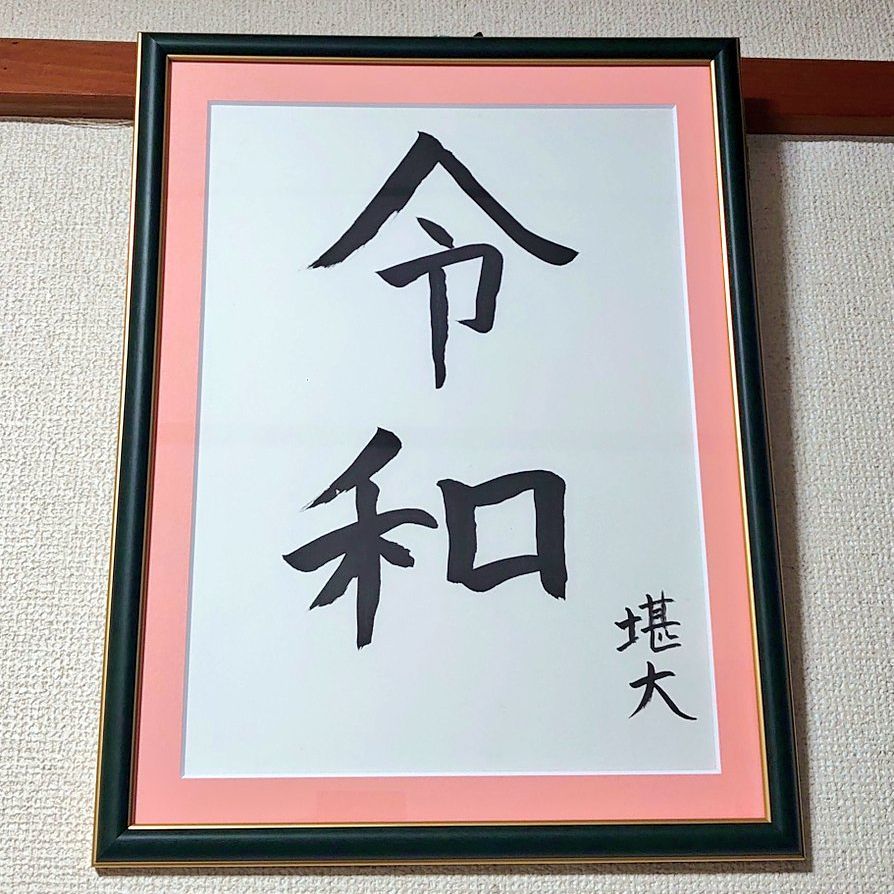 令和
堪大